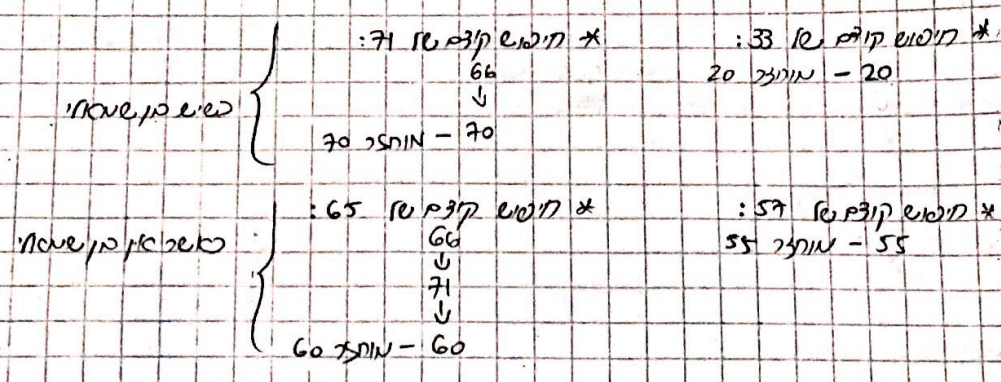 * חיפוש קודם של 33:
20 - מוחזר 20
* חיפוש קודם של 71:
66
↓
70 - מוחזר 70
כשיש בן שמאלי
* חיפוש קודם של 57:
55 - מוחזר 55
* חיפוש קודם של 65:
66
↓
71
↓
60 - מוחזר 60
כאשר אין בן שמאלי